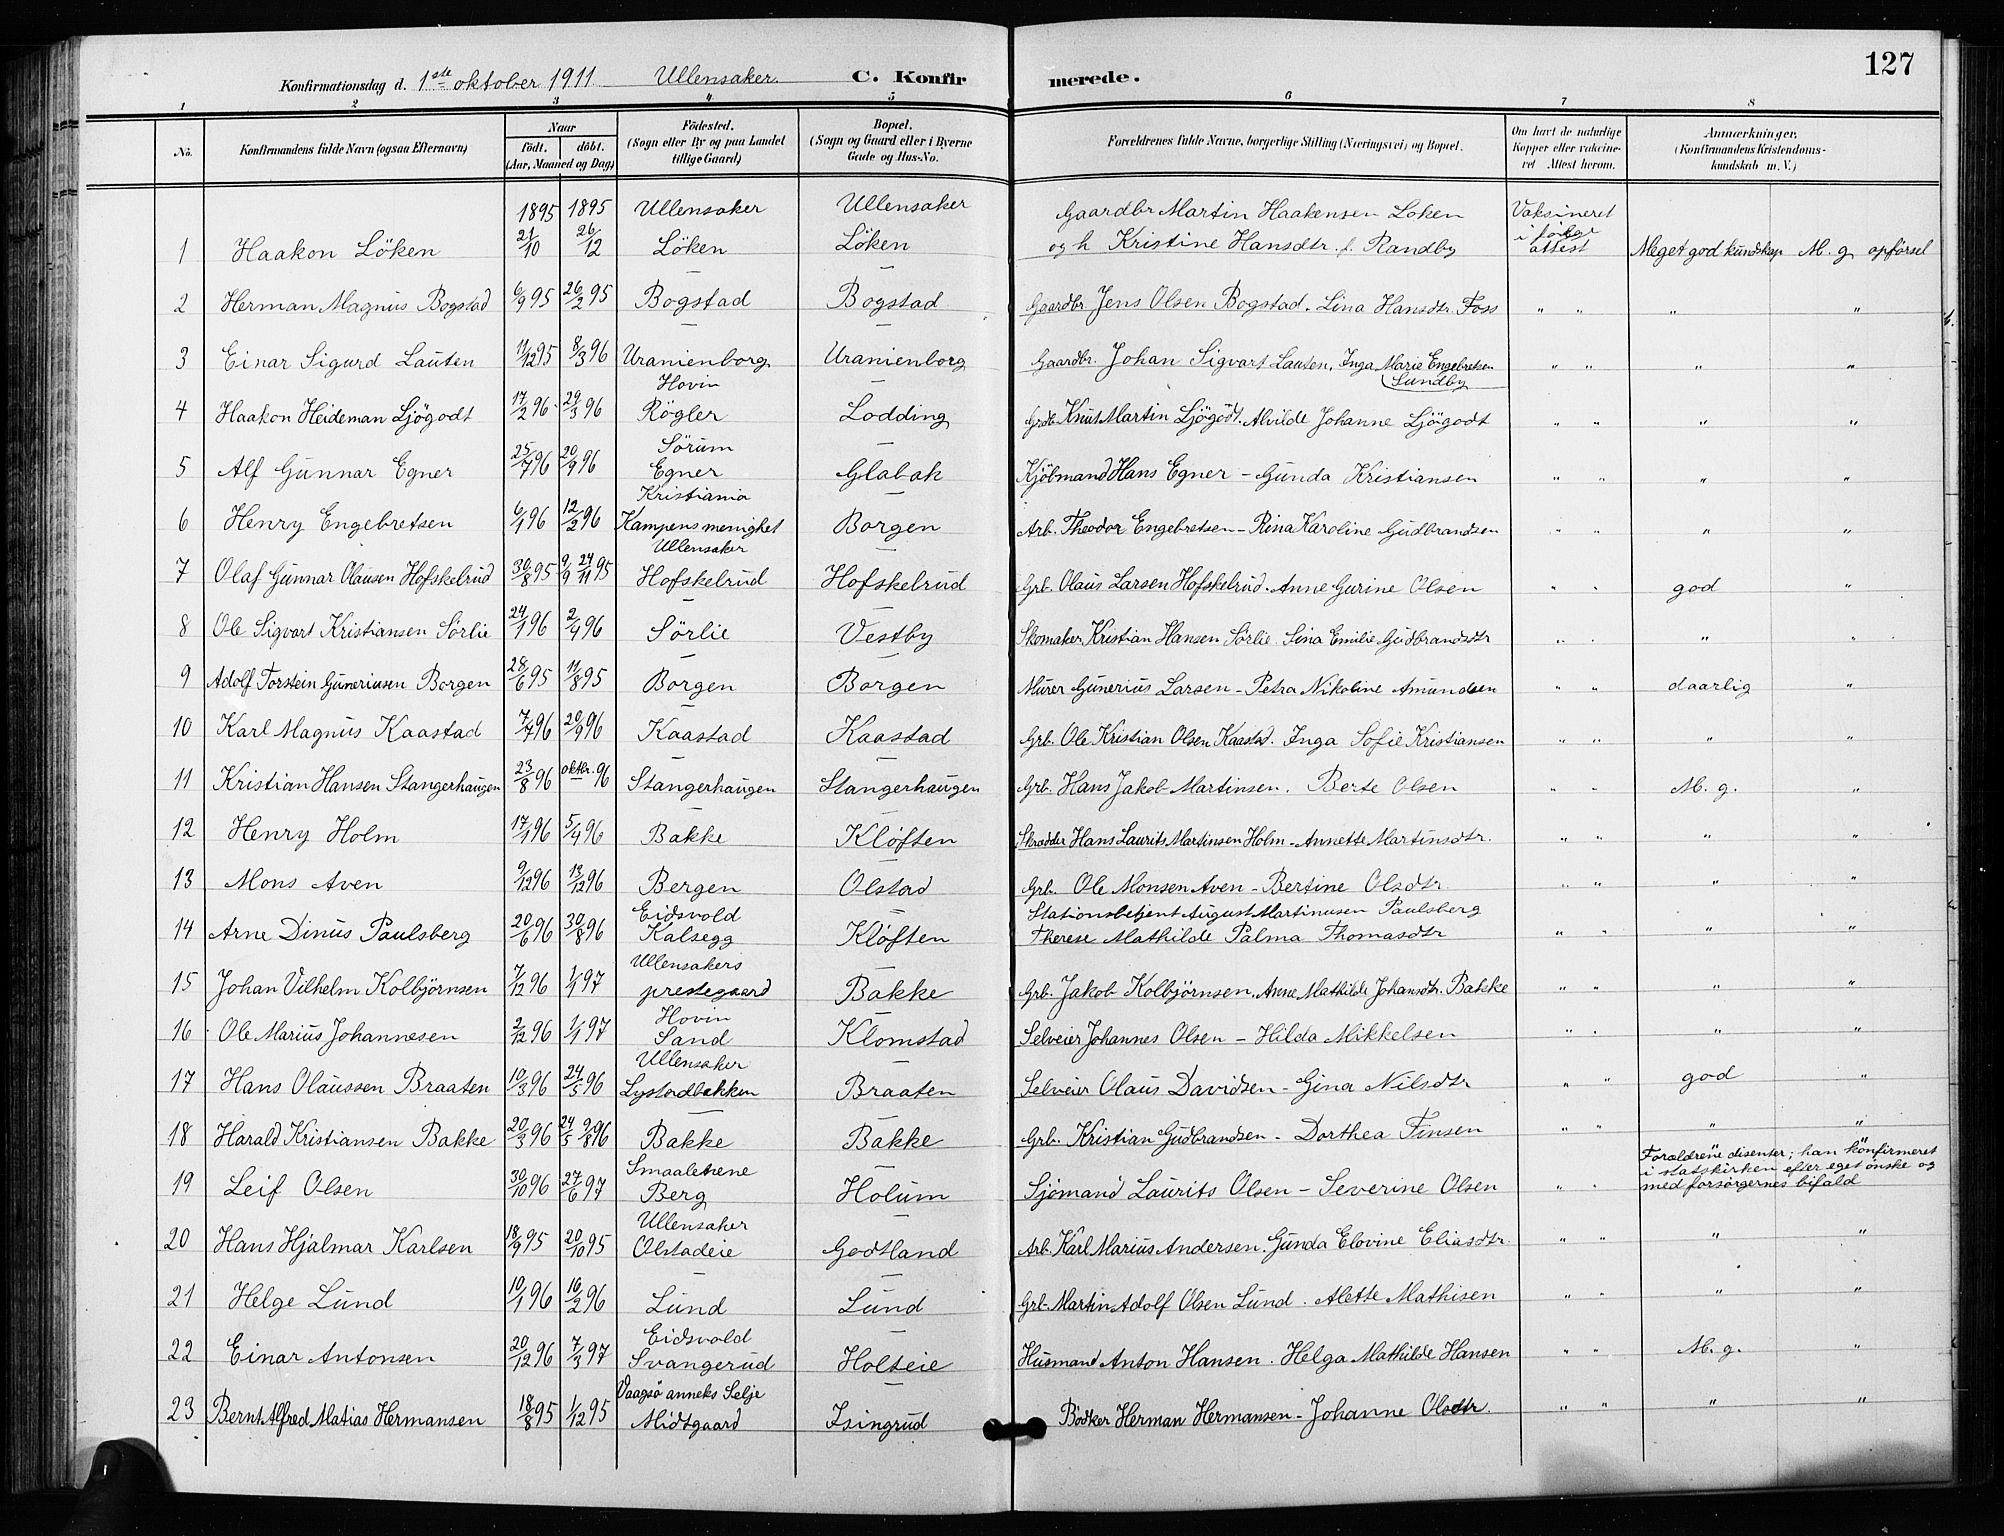 127
Konfirmationsdag d. 1ste oktober 1911. Ullensaker. C. Konfirmerede.
1 2 3 4 5 6 7 8
No. Konfirmandens fulde Navn (ogsaa Efternavn) Naar født. døbt. (Aar, Maaned og Dag) Fødested. (Sogn eller By og paa Landet tillige Gaard) Bopæl. (Sogn og Gaard eller i Byerne Gade og Hus-No. Forældrenes fulde Navne, borgerlige Stilling (Næringsvei) og Bopæl. Om havt de naturlige Kopper eller vakcineret Attest herom. Anmærkninger, (Konfirmandens Kristendomskundskab m. V.)
1895 1895 Ullensaker Ullensaker Gaardbr Martin Haakensen Løken Vaksineret
1 Haakon Löken 21/10 26/12 Löken Löken og h Kristine Hansdtr. f. Randby attest Meget god kundskap M. g. opførsel
2 Herman Magnus Bogstad 6/9 95 26/2 95 — Bogstad — Bogstad Gaardbr. Jens Olsen Bogstad. Lina Hansdtr. Foss " " " "
3 Einar Sigurd Lauten 11/12 95 8/3 96 — Uranienborg — Uranienborg Gaardbr. Johan Sigvart Lauten, Inga Marie Engebretsen Sundby " " " "
4 Haakon Heideman Ljögodt 17/2 96 29/3 96 Hovin Røgler — Lodding Grdb. Knut Martin Ljögodt. Alvilde Johanne Ljögodt " " " "
5 Alf Gunnar Egner 25/7 96 20/9 96 Sørum Egner — Glabak Kjöbmand Hans Egner – Gunda Kristiansen " " " "
6 Henry Engebretsen 6/1 96 12/2 96 Kristiania Kampens menighet — Borgen Arb. Theodor Engebretsen – Rina Karoline Gudbrandsen " " " "
7 Olaf Gunnar Olausen Hofskelrud 30/8 95 9/9 24/11 95 Ullensaker Hofskelrud Hofskelrud Grb. Olaus Larsen Hofskelrud. Anne Gurine Olsen " " god "
8 Ole Sigvart Kristiansen Sörlie 24/1 96 2/4 96 — Sörlie — Vestby Skomaker Kristian Hansen Sörlie. Lina Emilie Gudbrandsdtr " " " "
9 Adolf Torstein Guneriusen Borgen 28/6 95 11/8 95 — Borgen — Borgen Murer Gunerius Larsen – Petra Nikoline Amundsen " " daarlig "
10 Karl Magnus Kaastad 7/7 96 20/9 96 — Kaastad Kaastad Grb. Ole Kristian Olsen Kaastad. Inga Sofie Kristiansen " " " "
11 Kristian Hansen Stangerhaugen 23/8 96 oktbr. 96 — Stangerhaugen — Stangerhaugen Grb. Hans Jakob Martinsen. Berte Olsen " " M. g. "
12 Henry Holm 17/1 96 5/4 96 — Bakke — Kløften Skrædder Hans Laurits Martinsen Holm – Annette Martinsdtr. " " " "
13 Mons Aven 9/12 96 13/12 96 Bergen Olstad Grb. Ole Monsen Aven – Bertine Olsdtr. " " " "
14 Arne Dinus Paulsberg 20/6 96 30/8 96 Eidsvold Kalsegg — Kløften Stationsbetjent August Martinusen Paulsberg Therese Mathilde Palma Thomasdtr " " " "
15 Johan Vilhelm Kolbjörnsen 7/12 96 1/1 97 Ullensakers prestegaard — Bakke Grb. Jakob Kolbjørnsen, Anne Mathilde Johansdtr. Bakke " " " "
16 Ole Marius Johannesen 2/12 96 1/1 97 Hovin Sand — Klomstad Selveier Johannes Olsen – Hilda Mikkelsen " " " "
17 Hans Olaussen Braaten 10/3 96 24/5 96 Ullensaker Lystadbakken — Braaten Selveier Olaus Davidsen – Gina Nilsdtr " " god "
18 Harald Kristiansen Bakke 20/3 96 24/5 9/8 96 — Bakke — Bakke Grb. Kristian Gudbrandsen – Dorthea Finsen " " " "
19 Leif Olsen 30/10 96 27/6 97 Smaalenene Berg — Holum Sjömand Laurits Olsen – Severine Olsen " " Forældrene disenter; han konfirmeret i statskirken efter eget ønske og med forsørgernes bifald
20 Hans Hjalmar Karlsen 18/9 95 20/10 95 Ullensaker Olstadeie — Godtland Arb. Karl Marius Andersen. Gunda Elovine Eliasdtr. " " " "
21 Helge Lund 10/1 96 16/2 96 — Lund — Lund Grb. Martin Adolf Olsen Lund. Alette Mathisen " " " "
22 Einar Antonsen 20/12 96 7/3 97 Eidsvold Svangerud — Holteie Husmand Anton Hansen. Helga Mathilde Hansen " " M. g. "
23 Bernt Alfred Matias Hermansen 18/8 95 1/12 95 Vaagsø anneks Selje Midtgaard — Isingrud Bödker Herman Hermansen – Johanne Olsdtr. " " " "